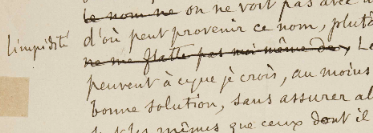 le nom ne on ne voit pas avec
limpidité d'où peut provenir ce nom, plutô
ne me flatte pas moi même de, Le
peuvent à ce que je crois, au moins
bonne solution, sans assurer al
mêmes que ceux dont il